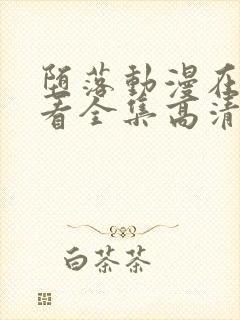 堕落動漫在
看全集高清
白茶茶